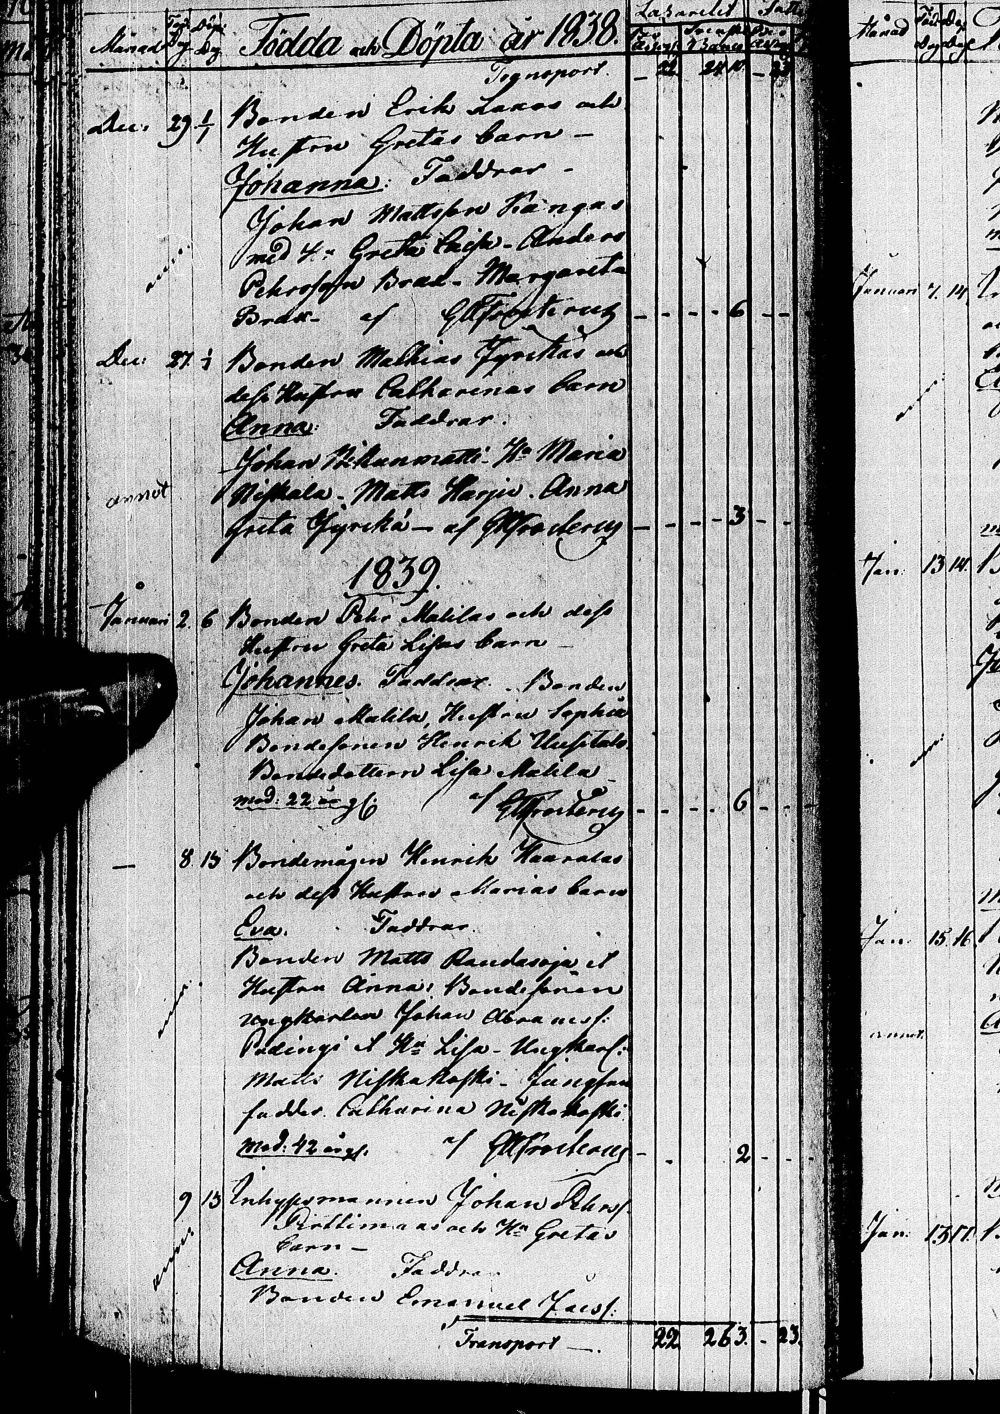 Månad Föd. Dg Döp. Dg Födda och Döpta år 1838.
Transport. 22 24 10 23
Dec: 29 1/1 Bonden Erik Lakas och
Hustru Gretas barn –
Johanna: Faddrar –
Johan Mattsson Kangas
med H:u Greta Caisa – Anders
Pehrsson Brax – Margareta
Brax – af GAFrosterus 6
Dec: 27. 1/1 Bonden Mathias Jyrikäs och
dess Hustru Catharinas barn
Anna: Faddrar:
Johan – H:u Maria
Niskala – Matts Harju – Anna
annot
Greta Jyrikä – af GAFrosterus 3
1839.
Januari 2. 6 Bonden Pehr Malilas och dess
Hustru Greta Lisas barn –
Johannes. Faddrar. Bonden
Johan Malila, Hustru Sophia
Bondesonen Henrik Uusitalo
Bondedottern Lisa Malila
mod: 22 år gl. af GAFrosterus 6
– 8 13 Bondemågen Henrik Haaralas
och dess Hustru Marias barn
Eva. Faddrar.
Bonden Matts Raudasoja et
Hustru Anna: Bondesonen
ungkarlen Johan Abramss:
et H:u Lisa – Ungkarl:
Matts Niskakoski – Jungfru
fadder Catharina Niskakoski
mod: 42 år gl. af GAFrosterus 2
9 13 Inhysesmannen Johan Pehrss.
Pirttimaas och H:u Gretas
barn –
annot
Anna. Faddra
Bonden Emanuel Jacss:
Transport – 22 263 23
Månad
Januari 7. 14
Jan: 13 14.
Jan: 15. 16
annot.
Jan: 13 17.